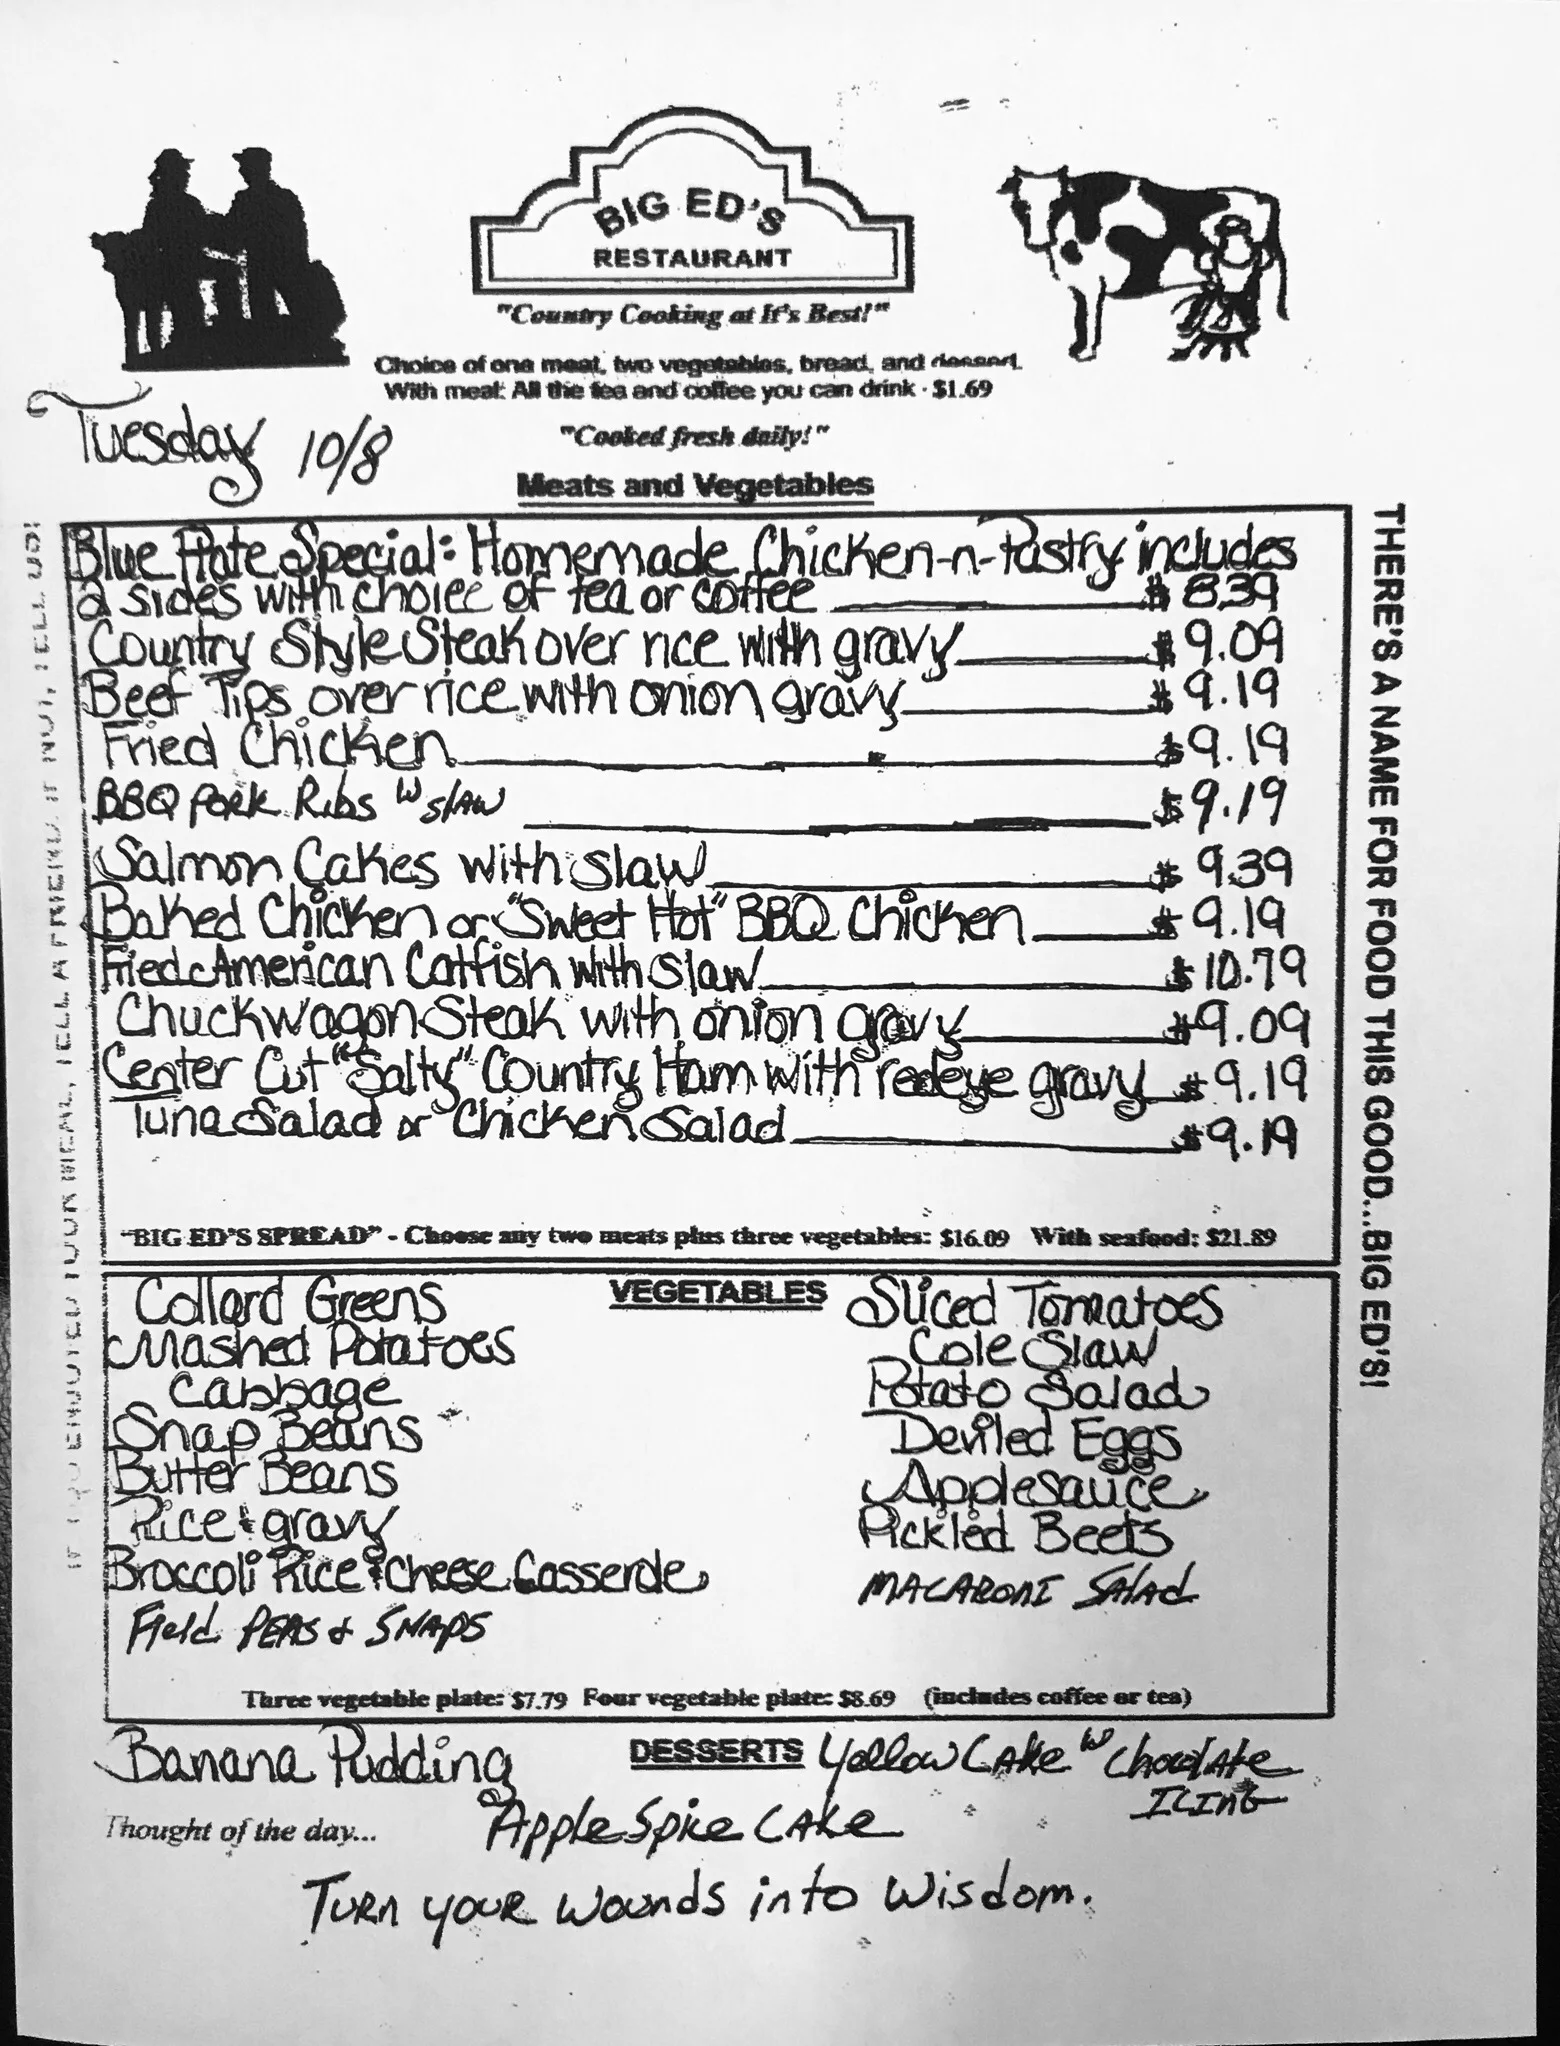 BIG ED'S
RESTAURANT
"Country Cooking at It's Best!"
Choice of one meat, two vegetables, bread, and dessert.
With meal: All the tea and coffee you can drink · $1.69
Tuesday 10/8
"Cooked fresh daily!"
Meats and Vegetables
Blue Plate Special: Homemade Chicken-n-Pastry includes
2 sides with choice of tea or coffee $8.39
Country Style Steak over rice with gravy $9.09
Beef Tips over rice with onion gravy $9.19
Fried Chicken $9.19
BBQ Pork Ribs w slaw $9.19
Salmon Cakes with slaw $9.39
Baked Chicken or "Sweet Hot" BBQ Chicken $9.19
Fried American Catfish with slaw $10.79
Chuckwagon Steak with onion gravy $9.09
Center Cut "Salty" Country Ham with redeye gravy $9.19
Tuna Salad or Chicken Salad $9.19
"BIG ED'S SPREAD" - Choose any two meats plus three vegetables: $16.09 With seafood: $21.89
VEGETABLES
Collard Greens
Mashed Potatoes
Cabbage
Snap Beans
Butter Beans
Rice & gravy
Broccoli Rice & Cheese Casserole
Field Peas & Snaps
Sliced Tomatoes
Cole Slaw
Potato Salad
Deviled Eggs
Applesauce
Pickled Beets
Macaroni Salad
Three vegetable plate: $7.79 Four vegetable plate: $8.69 (includes coffee or tea)
DESSERTS
Banana Pudding
Yellow Cake w Chocolate
Icing
Apple Spice Cake
Thought of the day...
Turn your wounds into wisdom.
IF YOU ENJOYED YOUR MEAL, TELL A FRIEND. IF NOT, TELL US!
THERE'S A NAME FOR FOOD THIS GOOD...BIG ED'S!